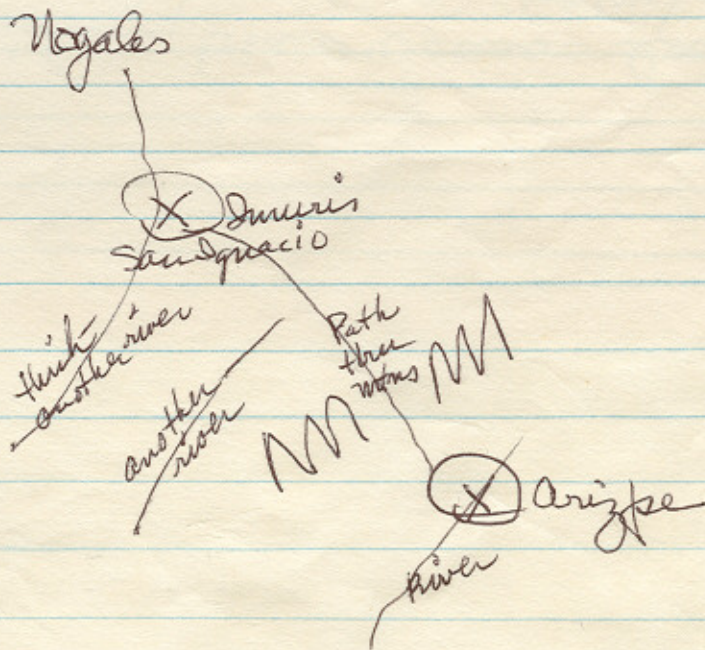 Nogales
X Imuris
San Ignacio
think
another river
another
river
Path
thru
mtns
X Arizpe
River